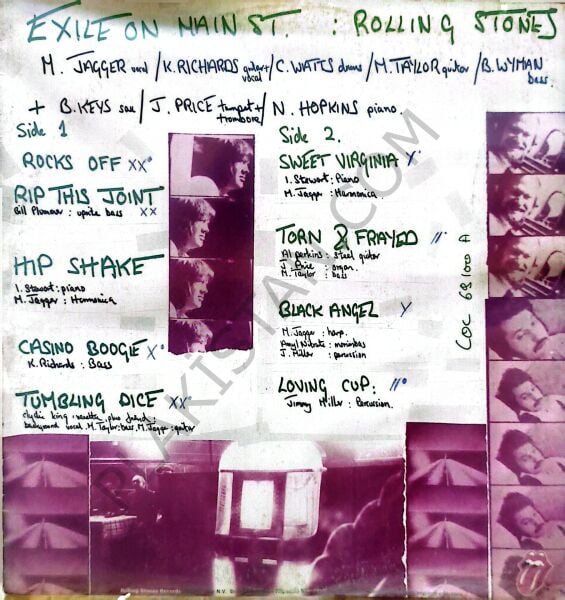 EXILE ON MAIN ST. : ROLLING STONES
M. JAGGER vocal / K. RICHARDS guitar + vocal / C. WATTS drums / M. TAYLOR guitar / B. WYMAN bass.
+ B. KEYS sax / J. PRICE trumpet + trombone / N. HOPKINS piano.
Side 1
ROCKS OFF xx°
RIP THIS JOINT
Bill Plummer : uprite bass xx
HIP SHAKE
I. Stewart : piano
M. Jagger : Harmonica
CASINO BOOGIE x°
K. Richards : Bass
TUMBLING DICE xx°
clydie king, vanetta, plus friend :
background vocal. M. Taylor : bass. M. Jagger : guitar
Side 2.
SWEET VIRGINIA x°
I. Stewart : Piano
M. Jagger : Harmonica.
TORN & FRAYED 11°
Al perkins : steel guitar
J. Price : organ.
M. Taylor : bass
BLACK ANGEL Y
M. Jagger : harp.
Amyl Nitrate : marimbas
J. Miller : percussion
LOVING CUP : 11°
Jimmy Miller : Percussion.
COC 69100 A
PLAKISTAN.COM
Rolling Stones Records